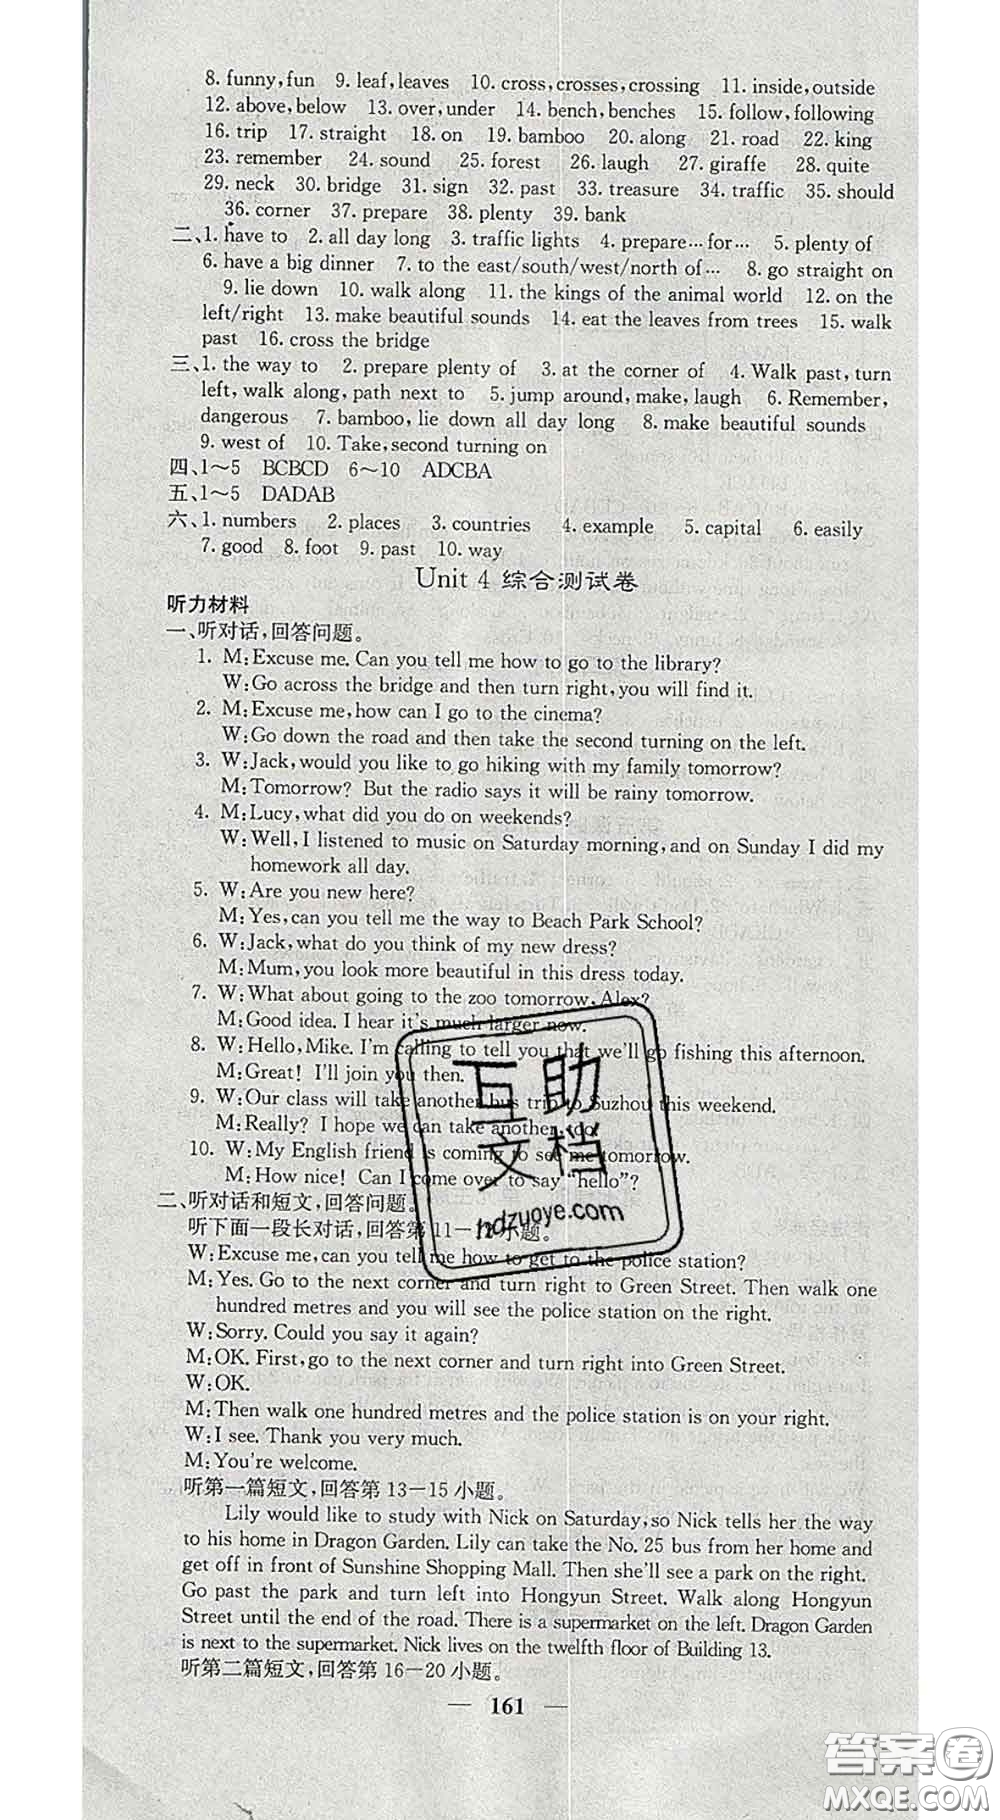 8. funny,fun 9. leaf,leaves 10. cross,crosses,crossing 11. inside,outside
12. above,below 13. over,under 14. bench,benches 15. follow,following
16. trip 17. straight 18. on 19. bamboo 20. along 21. road 22. king
23. remember 24. sound 25. forest 26. laugh 27. giraffe 28. quite
29. neck 30. bridge 31. sign 32. past 33. treasure 34. traffic 35. should
36. corner 37. prepare 38. plenty 39. bank
二、1. have to 2. all day long 3. traffic lights 4. prepare…for… 5. plenty of
6. have a big dinner 7. to the east/south/west/north of… 8. go straight on
9. lie down 10. walk along 11. the kings of the animal world 12. on the
left/right 13. make beautiful sounds 14. eat the leaves from trees 15. walk
past 16. cross the bridge
三、1. the way to 2. prepare plenty of 3. at the corner of 4. Walk past, turn
left, walk along, path next to 5. jump around, make, laugh 6. Remember,
dangerous 7. bamboo, lie down all day long 8. make beautiful sounds
9. west of 10. Take, second turning on
四、1～5 BCBCD 6～10 ADCBA
五、1～5 DADAB
六、1. numbers 2. places 3. countries 4. example 5. capital 6. easily
7. good 8. foot 9. past 10. way
Unit 4 综合测试卷
听力材料
一、听对话,回答问题。
1. M:Excuse me. Can you tell me how to go to the library?
W:Go across the bridge and then turn right,you will find it.
2. M:Excuse me,how can I go to the cinema?
W:Go down the road and then take the second turning on the left.
3. W:Jack,would you like to go hiking with my family tomorrow?
M:Tomorrow? But the radio says it will be rainy tomorrow.
4. M:Lucy,what did you do on weekends?
W:Well,I listened to music on Saturday morning,and on Sunday I did my
homework all day.
5. W:Are you new here?
M:Yes,can you tell me the way to Beach Park School?
6. W:Jack,what do you think of my new dress?
M:Mum,you look more beautiful in this dress today.
7. W:What about going to the zoo tomorrow, Alex?
M:Good idea. I hear it's much larger now.
8. W:Hello, Mike. I'm calling to tell you that we'll go fishing this afternoon.
M:Great! I'll join you then.
9. W:Our class will take another bus trip to Suzhou this weekend.
M:Really? I hope we can take another,too.
10. W:My English friend is coming to see me tomorrow.
M:How nice! Can I come over to say "hello"?
二、听对话和短文,回答问题。
听下面一段长对话,回答第 11－12 小题。
W:Excuse me,can you tell me how to get to the police station?
M:Yes. Go to the next corner and turn right to Green Street. Then walk one
hundred metres and you will see the police station on the right.
W:Sorry. Could you say it again?
M:OK. First,go to the next corner and turn right into Green Street.
W:OK.
M:Then walk one hundred metres and the police station is on your right.
W:I see. Thank you very much.
M:You're welcome.
听第一篇短文,回答第 13－15 小题。
Lily would like to study with Nick on Saturday,so Nick tells her the way
to his home in Dragon Garden. Lily can take the No. 25 bus from her home and
get off in front of Sunshine Shopping Mall. Then she'll see a park on the right.
Go past the park and turn left into Hongyun Street. Walk along Hongyun
Street until the end of the road. There is a supermarket on the left. Dragon Garden
is next to the supermarket. Nick lives on the twelfth floor of Building 13.
听第二篇短文,回答第 16－20 小题。
— 161 —
互助
文档
hdzuoye.com
答案圈
MXQE.COM